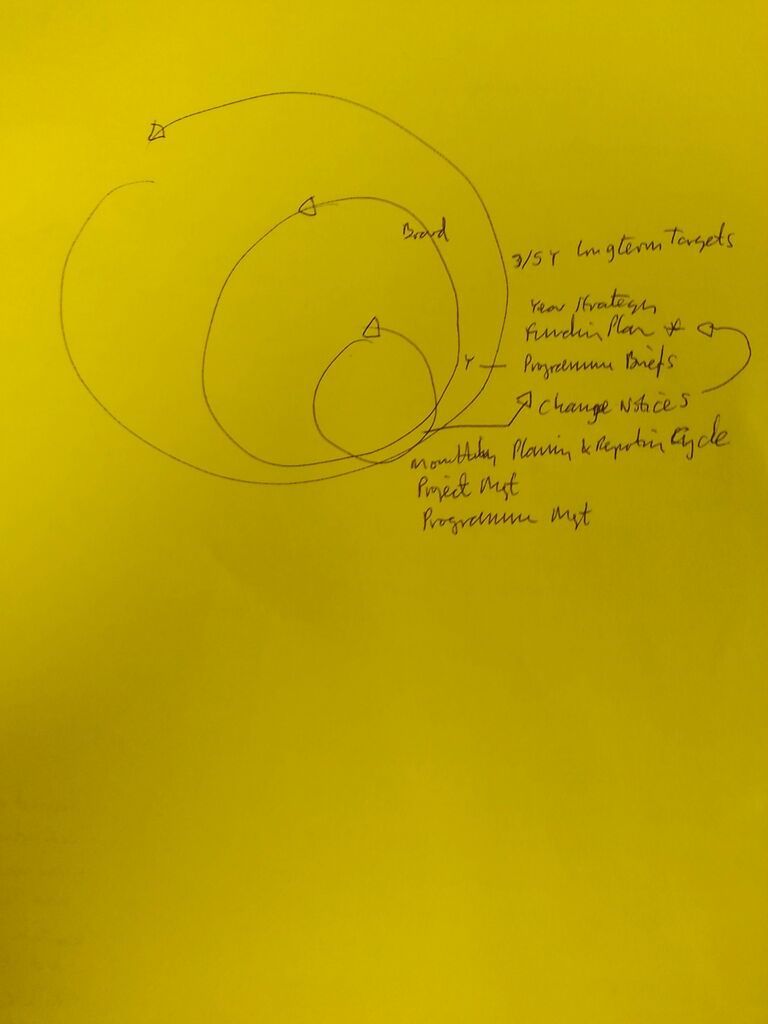 Board
3/5 Y Longterm Targets
Year Strategy
Funding Plan *
Y — Programme Briefs
Change Notices
Monthly Planning & Reporting Cycle
Project Mgt
Programme Mgt